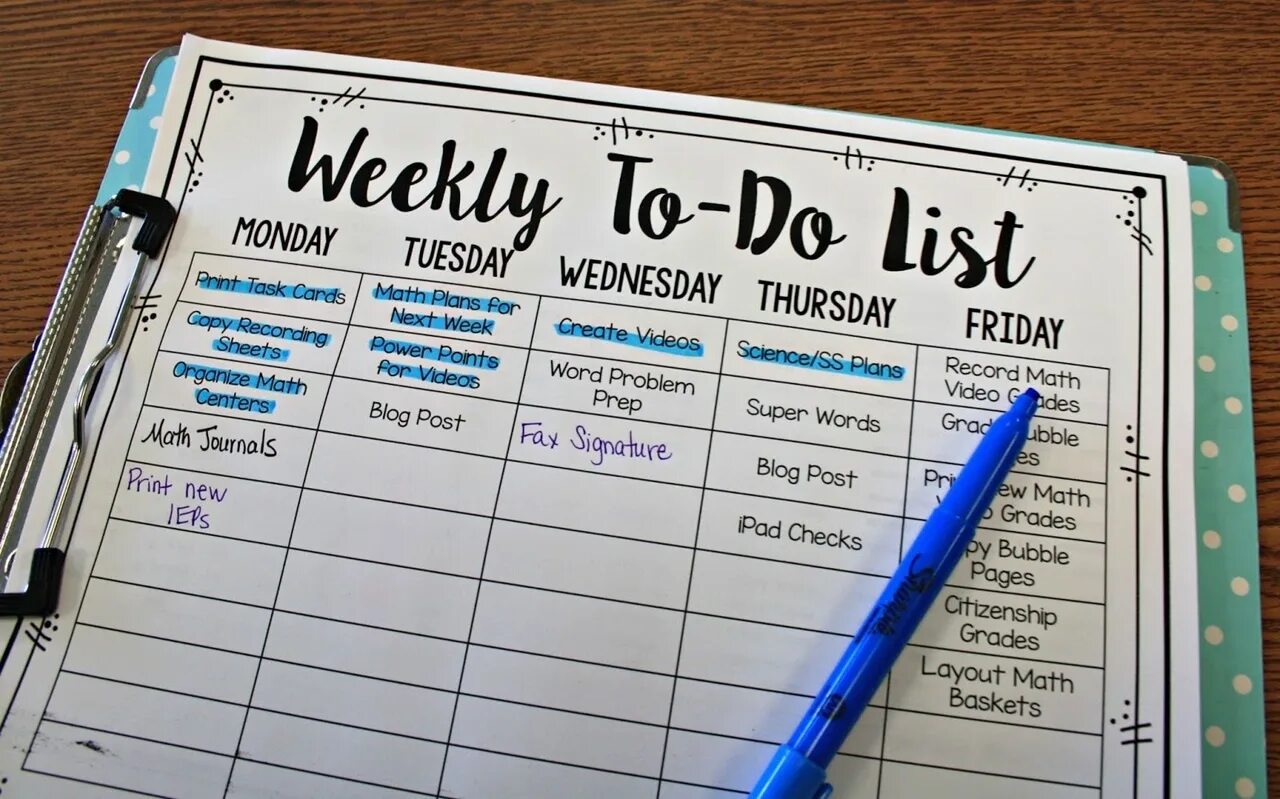 Weekly To-Do List
MONDAY
TUESDAY
WEDNESDAY
THURSDAY
FRIDAY
Print Task Cards
Copy Recording
Sheets
Organize Math
Centers
Math Journals
Print new
IEPs
Math Plans for
Next Week
Power Points
for Videos
Blog Post
Create Videos
Word Problem
Prep
Fax Signature
Science/SS Plans
Super Words
Blog Post
iPad Checks
Record Math
Video Grades
Bubble
Math
Grades
Bubble
Pages
Citizenship
Grades
Layout Math
Baskets
Sharpie